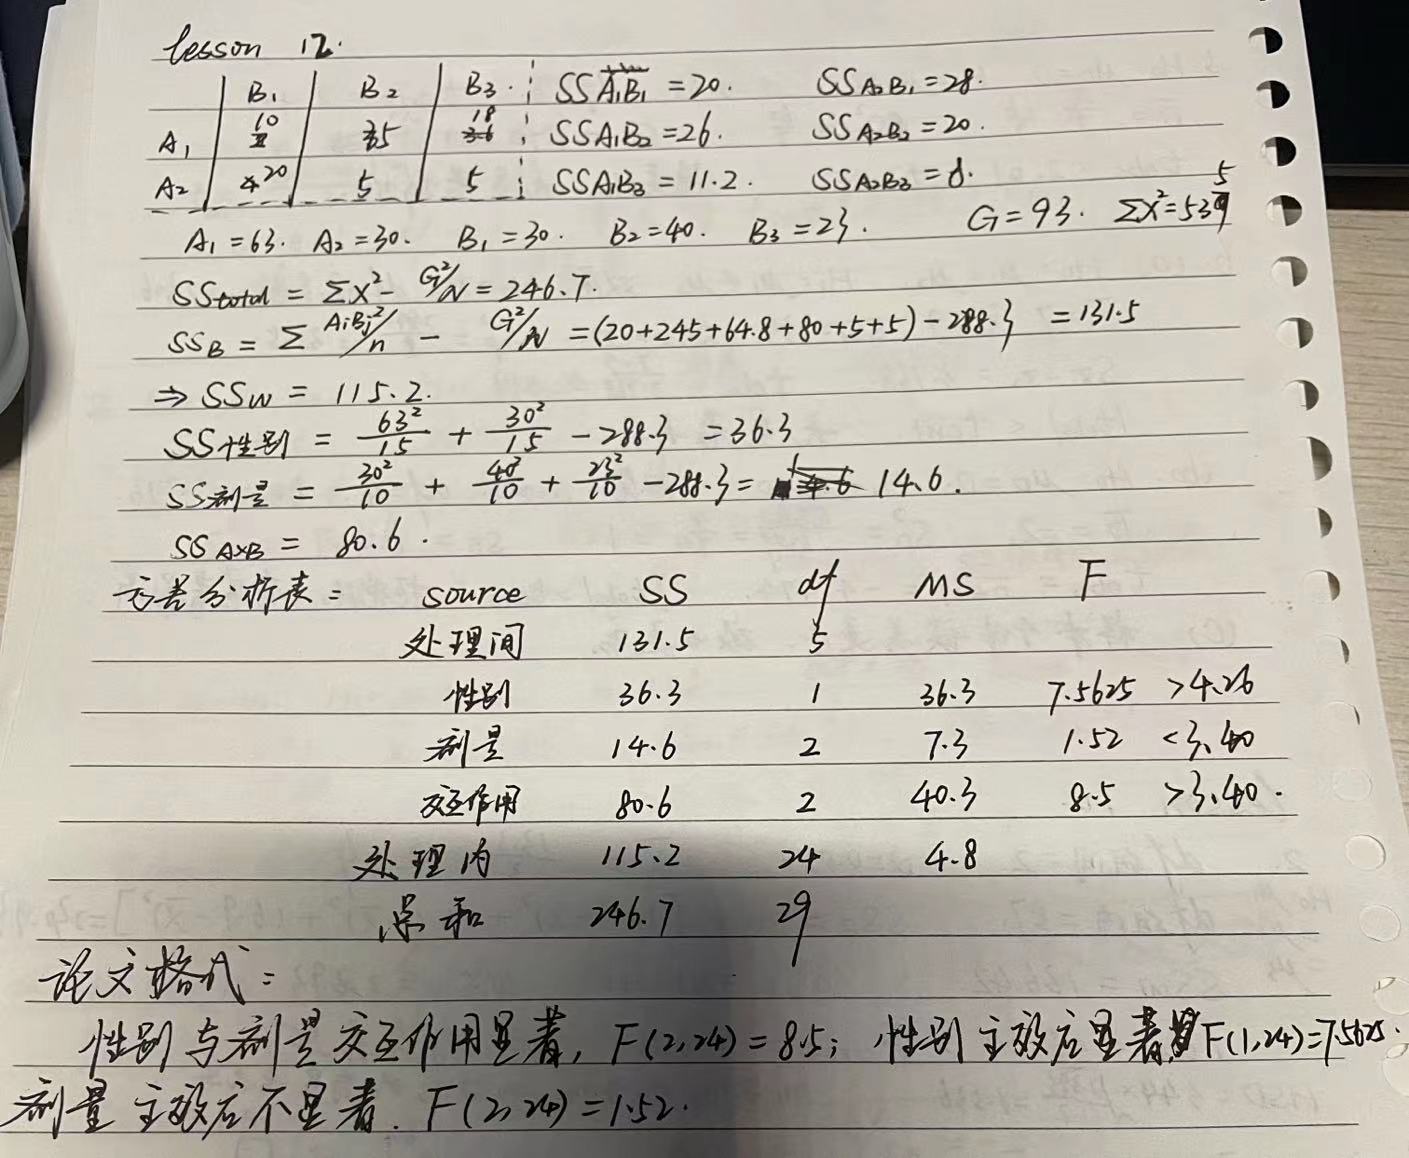 lesson 12.
B₁ B₂ B₃ SSA₁B₁ = 20. SSA₂B₁ = 28.
A₁ 10 35 18 SSA₁B₂ = 26. SSA₂B₂ = 20.
A₂ 20 5 5 SSA₁B₃ = 11.2. SSA₂B₃ =
A₁ = 63. A₂ = 30. B₁ = 30. B₂ = 40. B₃ = 23. G = 93. ΣX² = 535
SStotal = ΣX² - G²/N = 246.7.
SS_B = Σ AiBj²/n - G²/N = (20+245+64.8+80+5+5) - 288.3 = 131.5
⇒ SSw = 115.2.
SS性别 = 63²/15 + 30²/15 - 288.3 = 36.3
SS剂量 = 30²/10 + 40²/10 + 23²/10 - 288.3 = 14.6.
SS A×B = 80.6.
方差分析表: source SS df MS F
处理间 131.5 5
性别 36.3 1 36.3 7.5625 >4.26
剂量 14.6 2 7.3 1.52 <3.40
交互作用 80.6 2 40.3 8.5 >3.40.
处理内 115.2 24 4.8
总和 246.7 29
论文格式:
性别与剂量交互作用显著, F(2,24) = 8.5; 性别主效应显著 F(1,24)=7.5625.
剂量主效应不显著. F(2,24) = 1.52.